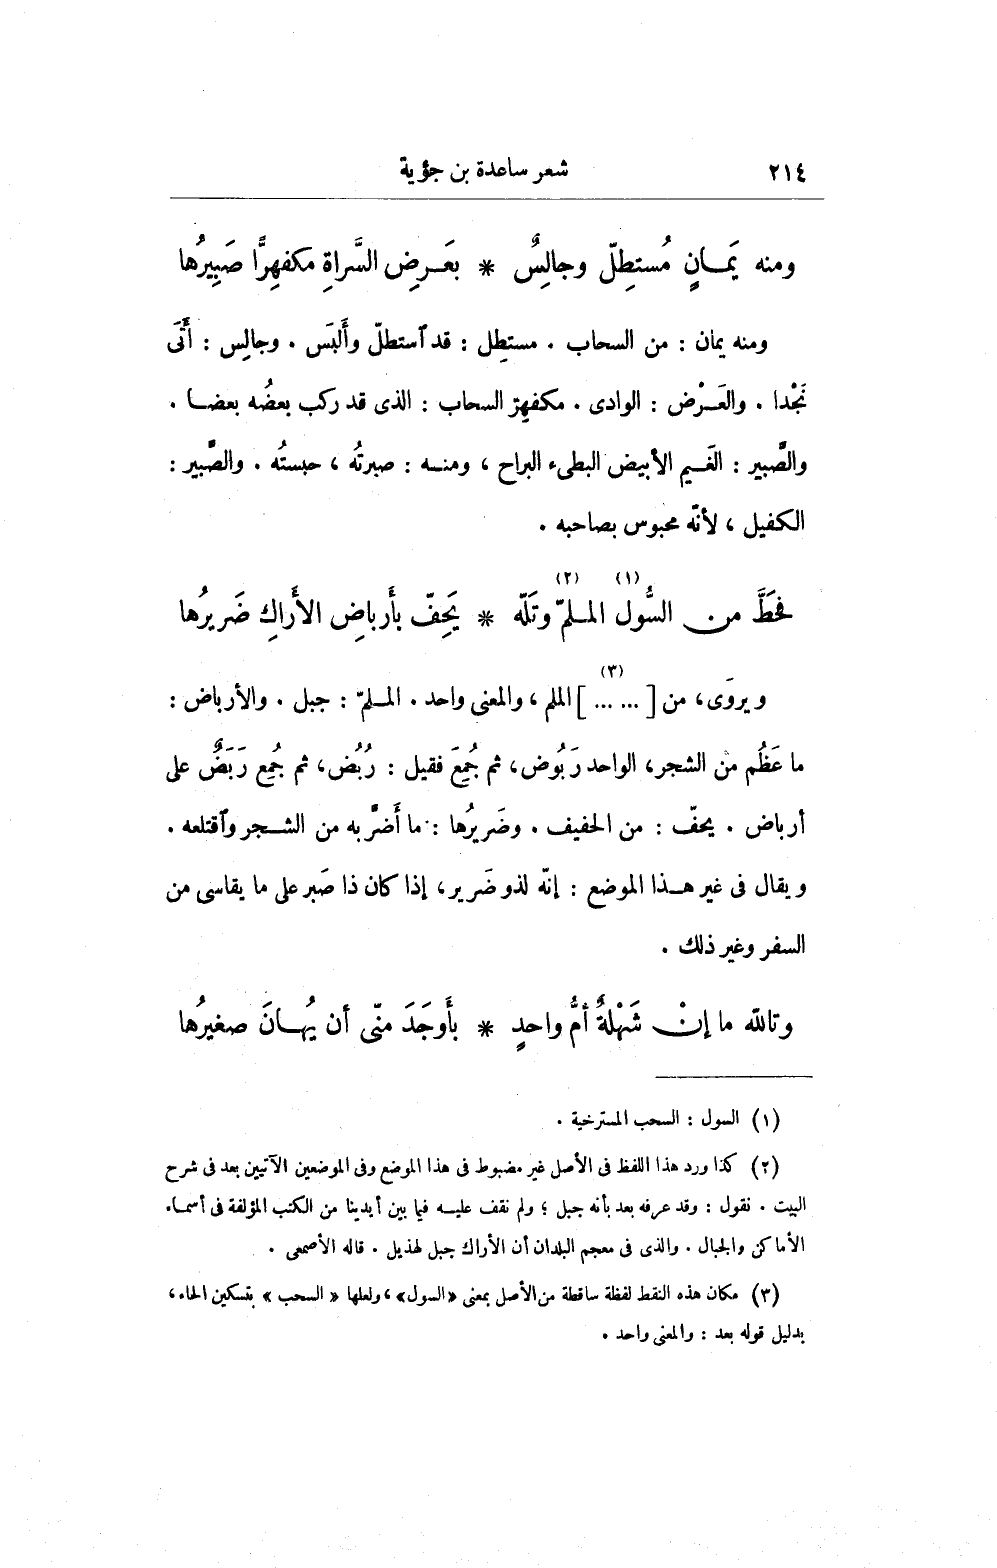 ٢١٤ شعر ساعدة بن جؤية
ومنه يَمــانٍ مُستطِلّ وجالِسٌ * بعَـرضِ السَّراةِ مكفهِرًّا صَبِيرُها
ومنه يمان : من السحاب . مستطِل : قد ٱستطلّ وأَلبَس . وجالِس : أَتَى
نَجْدا . والعَــرْض : الوادى . مكفهِرّ السحاب : الذى قد ركب بعضُه بعضــا .
والصَّبير : الغَــيم الأبيض البطىء البراح ، ومنــه : صبرتُه ، حبستُه . والصَّبير :
الكفيل ، لأنّه محبوس بصاحبه .
فحَطَّ من السُّول (١) الملمّ (٢) وتَلّه * يَحِفّ بأَرباضِ الأَراكِ ضَريرُها
ويروَى، من [ ... ... ] (٣) الملم ، والمعنى واحد . المـلمّ : جبل . والأرباض :
ما عَظُم من الشجر، الواحد رَبُوض، ثم جُمِعَ فقيل : رُبُض، ثم جُمِع رَبَضٌ على
أرباض . يحفّ : من الحفيف . وضَريرُها : ما أَضرَّ به من الشــجر وٱقتلعه .
ويقال فى غير هــذا الموضع : إنّه لذو ضَرير، إذا كان ذا صَبر على ما يقاسى من
السفر وغير ذلك .
وتالله ما إنْ شَهْلةٌ أمُّ واحدٍ * بأَوجَدَ منّى أن يُهــانَ صغيرُها
(١) السول : السحب المسترخية .
(٢) كذا ورد هذا اللفظ فى الأصل غير مضبوط فى هذا الموضع وفى الموضعين الآتيين بعد فى شرح
البيت . نقول : وقد عرفه بعد بأنه جبل ؛ ولم نقف عليــه فيما بين أيدينا من الكتب المؤلفة فى أسمـاء
الأماكن والجبال . والذى فى معجم البلدان أن الأراك جبل لهذيل . قاله الأصمعى .
(٣) مكان هذه النقط لفظة ساقطة من الأصل بمعنى «السول» ، ولعلها « السحب » بتسكين الحاء ،
بدليل قوله بعد : والمعنى واحد .